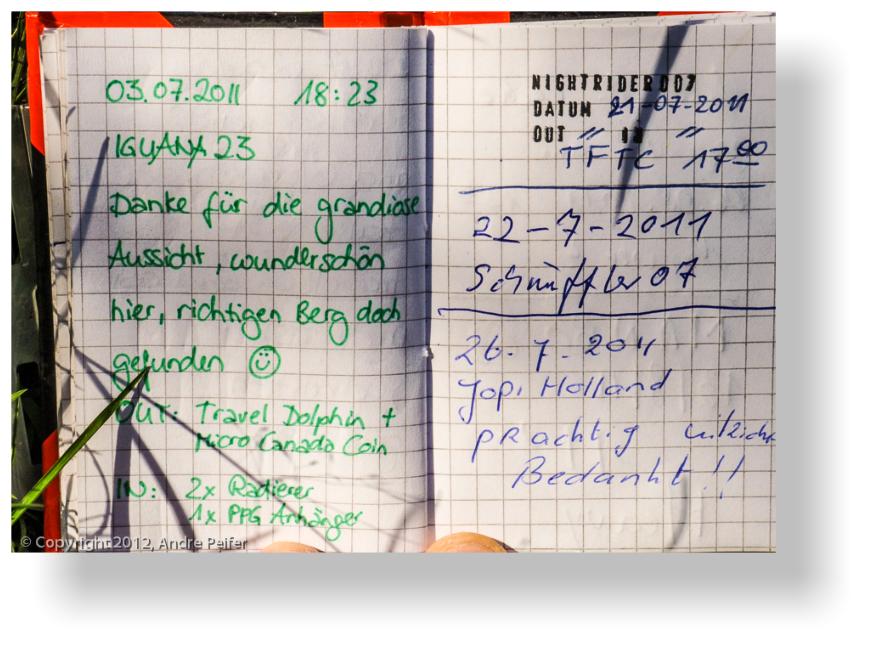 03.07.2011 18:23
IGUANA 23
Danke für die grandiose
Aussicht, wunderschön
hier, richtigen Berg doch
gefunden ☺
OUT: Travel Dolphin +
Micro Canada Coin
IN: 2x Radierer
1x PPG Anhänger
NIGHTRIDER007
DATUM 21-07-2011
OUT " IN "
TFTC 17⁰⁰
22-7-2011
Schnüffler 07
26.7.2011
Jopi Holland
prachtig
Bedankt!!
© Copyright 2012, Andre Peifer